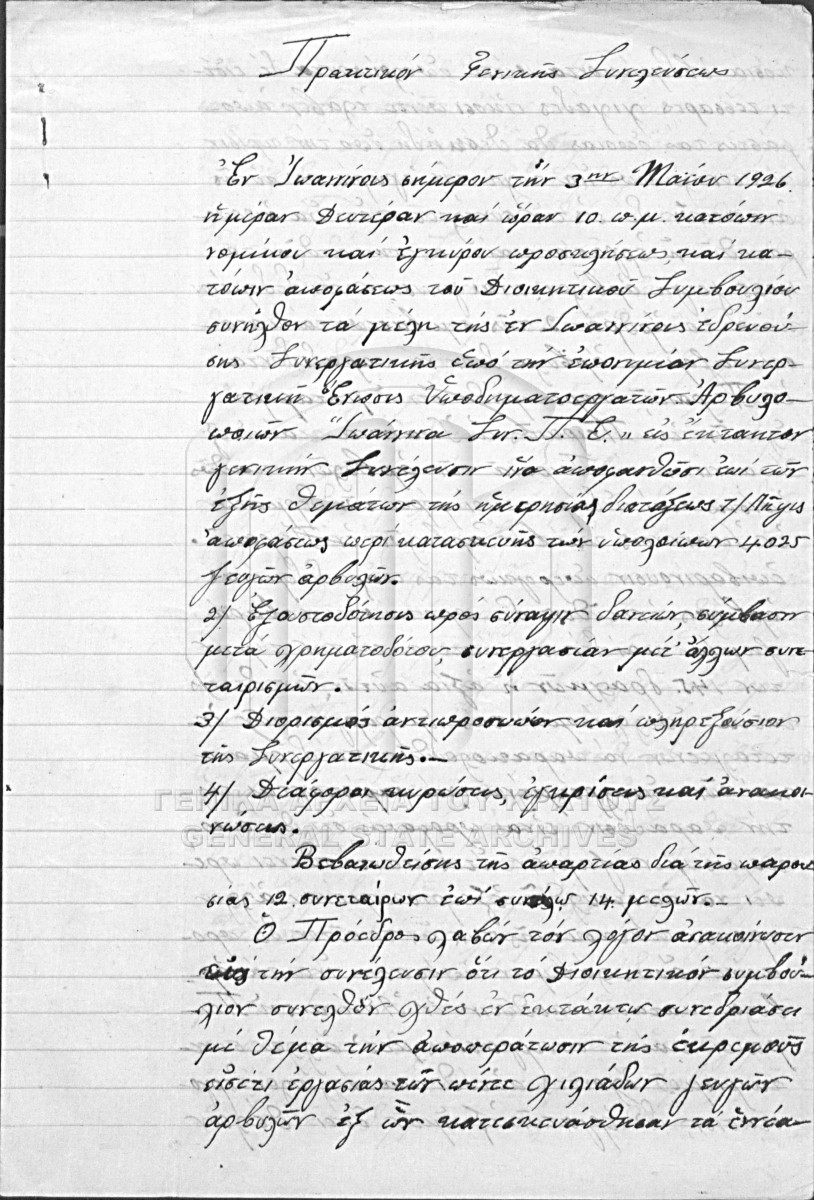 Πρακτικόν Γενικῆς Συνελεύσεως
Ἐν Ἰωαννίνοις σήμερον τὴν 3ην Μαΐου 1926
ἡμέραν Δευτέραν καὶ ὥραν 10 π.μ. κατόπιν
νομίμου καὶ ἐγκύρου προσκλήσεως καὶ κα-
τόπιν ἀποφάσεως τοῦ Διοικητικοῦ Συμβουλίου
συνῆλθον τὰ μέλη τῆς ἐν Ἰωαννίνοις ἑδρευού-
σης Συνεργατικῆς ὑπό τὴν ἐπωνυμίαν Συνερ-
γατική Ἕνωσις Ὑποδηματεργατῶν Ἀρβυλο-
ποιῶν "Ἰωάννινα Συν. Π. Ε." εἰς ἔκτακτον
γενικήν Συνέλευσιν ἵνα ἀποφανθῶσι ἐπί τῶν
ἑξῆς θεμάτων τῆς ἡμερησίας διατάξεως 1/ Λῆψις
ἀποφάσεως περί κατασκευῆς τῶν ὑπολοίπων 4025
ζευγῶν ἀρβυλῶν.
2/ Ἐξουσιοδότησις πρός σύναψιν δανείων, σύμβασιν
μετά χρηματοδότου, συνεργασίαν μετ' ἄλλων συνε-
ταιρισμῶν.
3/ Διορισμός ἀντιπροσώπων καί πληρεξουσίων
τῆς Συνεργατικῆς.—
4/ Διάφοροι κυρώσεις, ἐγκρίσεις καί ἀνακοι-
νώσεις.
ΓΕΝΙΚΑ ΑΡΧΕΙΑ ΤΟΥ ΚΡΑΤΟΥΣ
GENERAL STATE ARCHIVES
Βεβαιωθείσης τῆς ἀπαρτίας διά τῆς παρου
σίας 12 συνεταίρων ἐπί συνόλῳ 14 μελῶν.—
Ὁ Πρόεδρος λαβών τόν λόγον ἀνακοίνωσεν
εἰς τήν συνέλευσιν ὅτι τό Διοικητικόν συμβού-
λιον συνελθόν χθές ἐν ἐκτάκτῳ συνεδριάσει
μέ θέμα τήν ἀποπεράτωσιν τῆς ἐκρεμοῦς
εἰσέτι ἐργασίας τῶν πέντε χιλιάδων ζευγῶν
ἀρβυλῶν ἐξ ὧν κατεσκευάσθησαν τά ἐννέα-